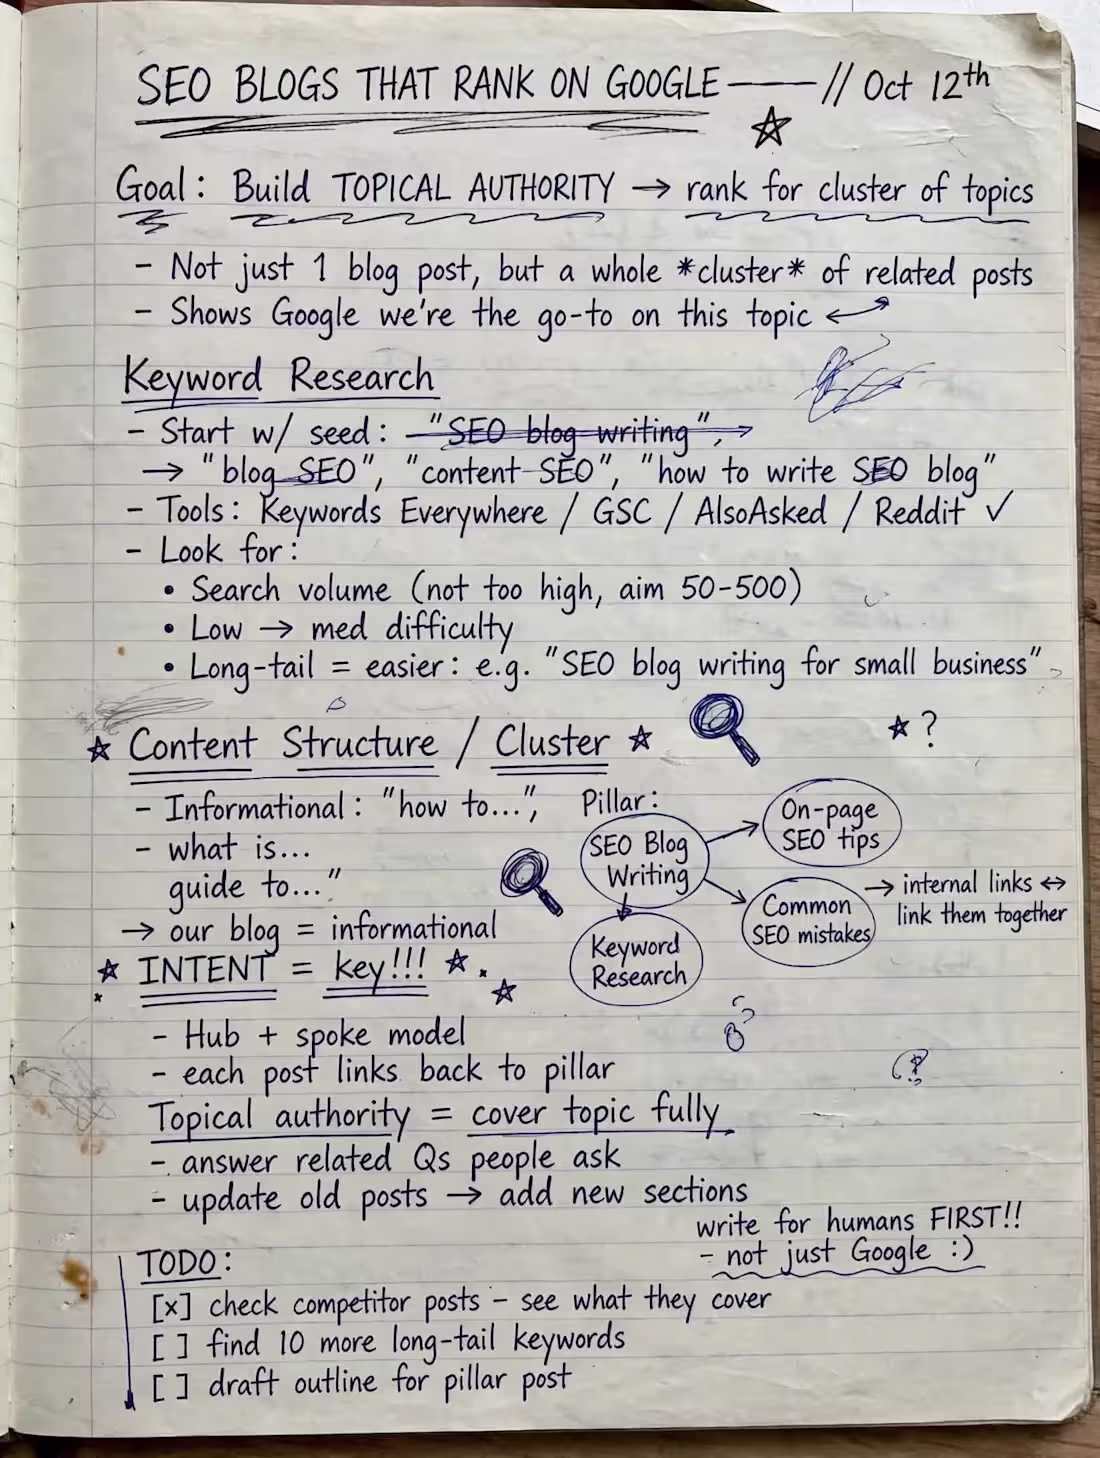 SEO BLOGS THAT RANK ON GOOGLE —— // Oct 12th
Goal: Build TOPICAL AUTHORITY → rank for cluster of topics
- Not just 1 blog post, but a whole *cluster* of related posts
- Shows Google we're the go-to on this topic ↔
Keyword Research
- Start w/ seed: "SEO blog writing", →
→ "blog SEO", "content SEO", "how to write SEO blog"
- Tools: Keywords Everywhere / GSC / AlsoAsked / Reddit ✓
- Look for:
• Search volume (not too high, aim 50-500)
• Low → med difficulty
• Long-tail = easier: e.g. "SEO blog writing for small business"
☆ Content Structure / Cluster ☆
★ ?
- Informational: "how to...",
- what is...
guide to..."
→ our blog = informational
Pillar:
SEO Blog
Writing
On-page
SEO tips
Common
SEO mistakes
→ internal links ↔
link them together
Keyword
Research
☆ INTENT = key!!! ☆
- Hub + spoke model
- each post links back to pillar
Topical authority = cover topic fully
- answer related Qs people ask
- update old posts → add new sections
write for humans FIRST!!
- not just Google :)
TODO:
[x] check competitor posts - see what they cover
[ ] find 10 more long-tail keywords
[ ] draft outline for pillar post